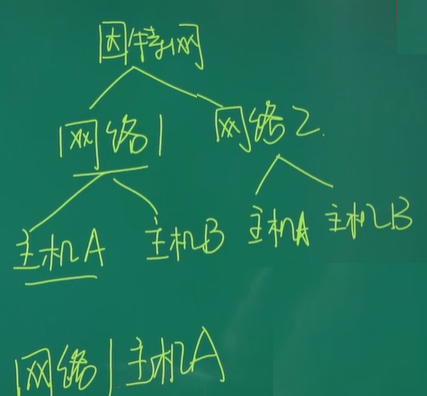 因特网
网络1 网络2
主机A 主机B 主机A 主机B
网络1主机A